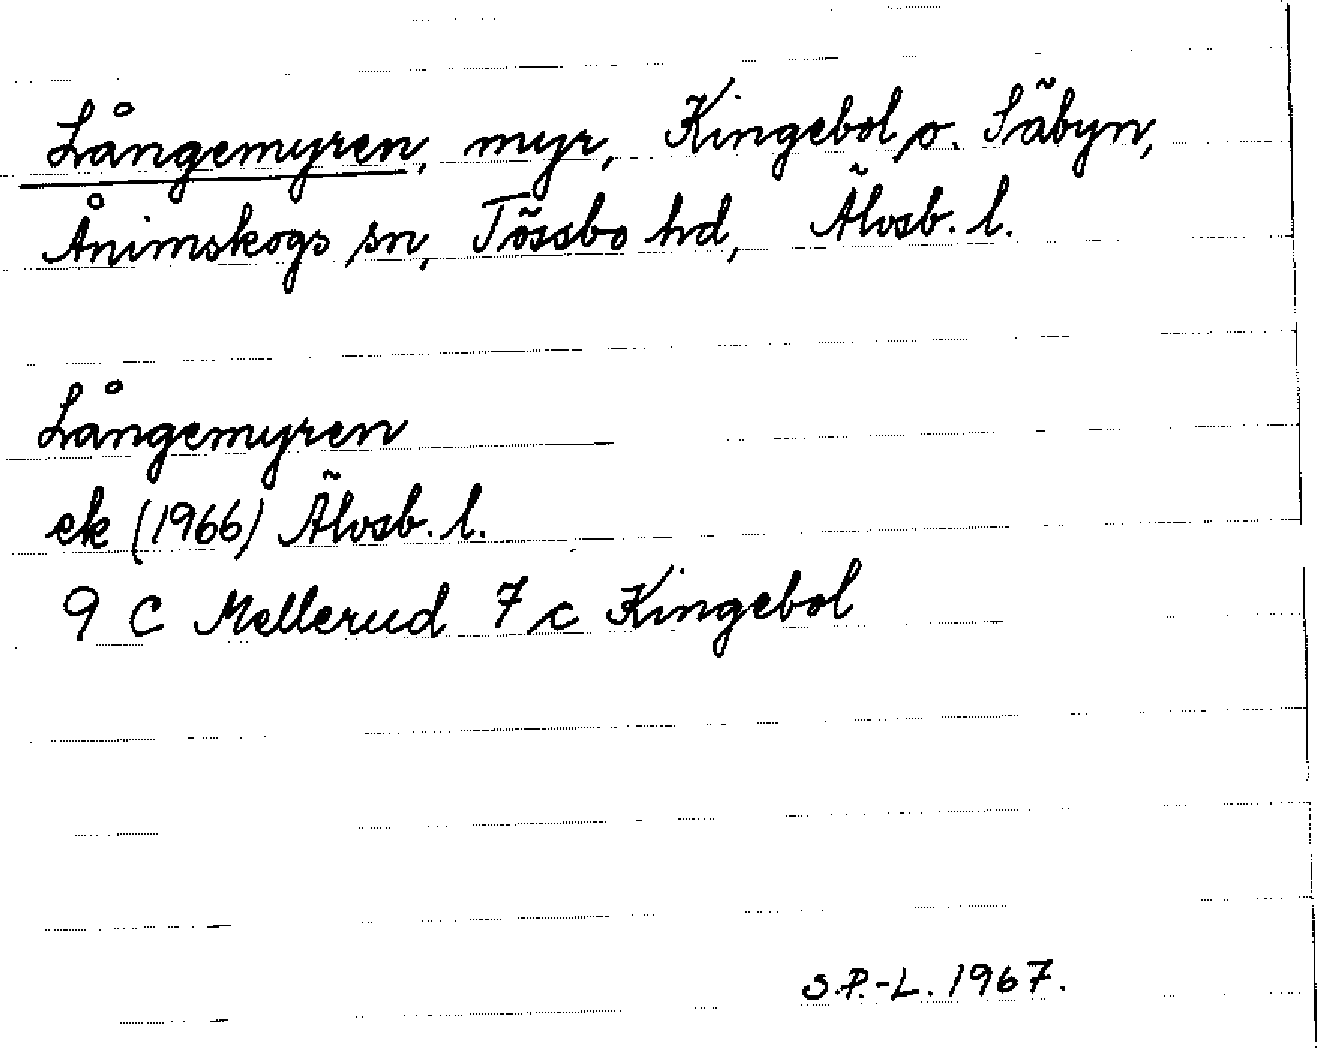 Långemyren, myr, Kingebol o. Säbyn,
Ånimskogs sn, Tössbo hd, Älvsb. l.
Långemyren
ek (1966) Älvsb. l.
9 C Mellerud 7 c Kingebol
S.P.-L. 1967.